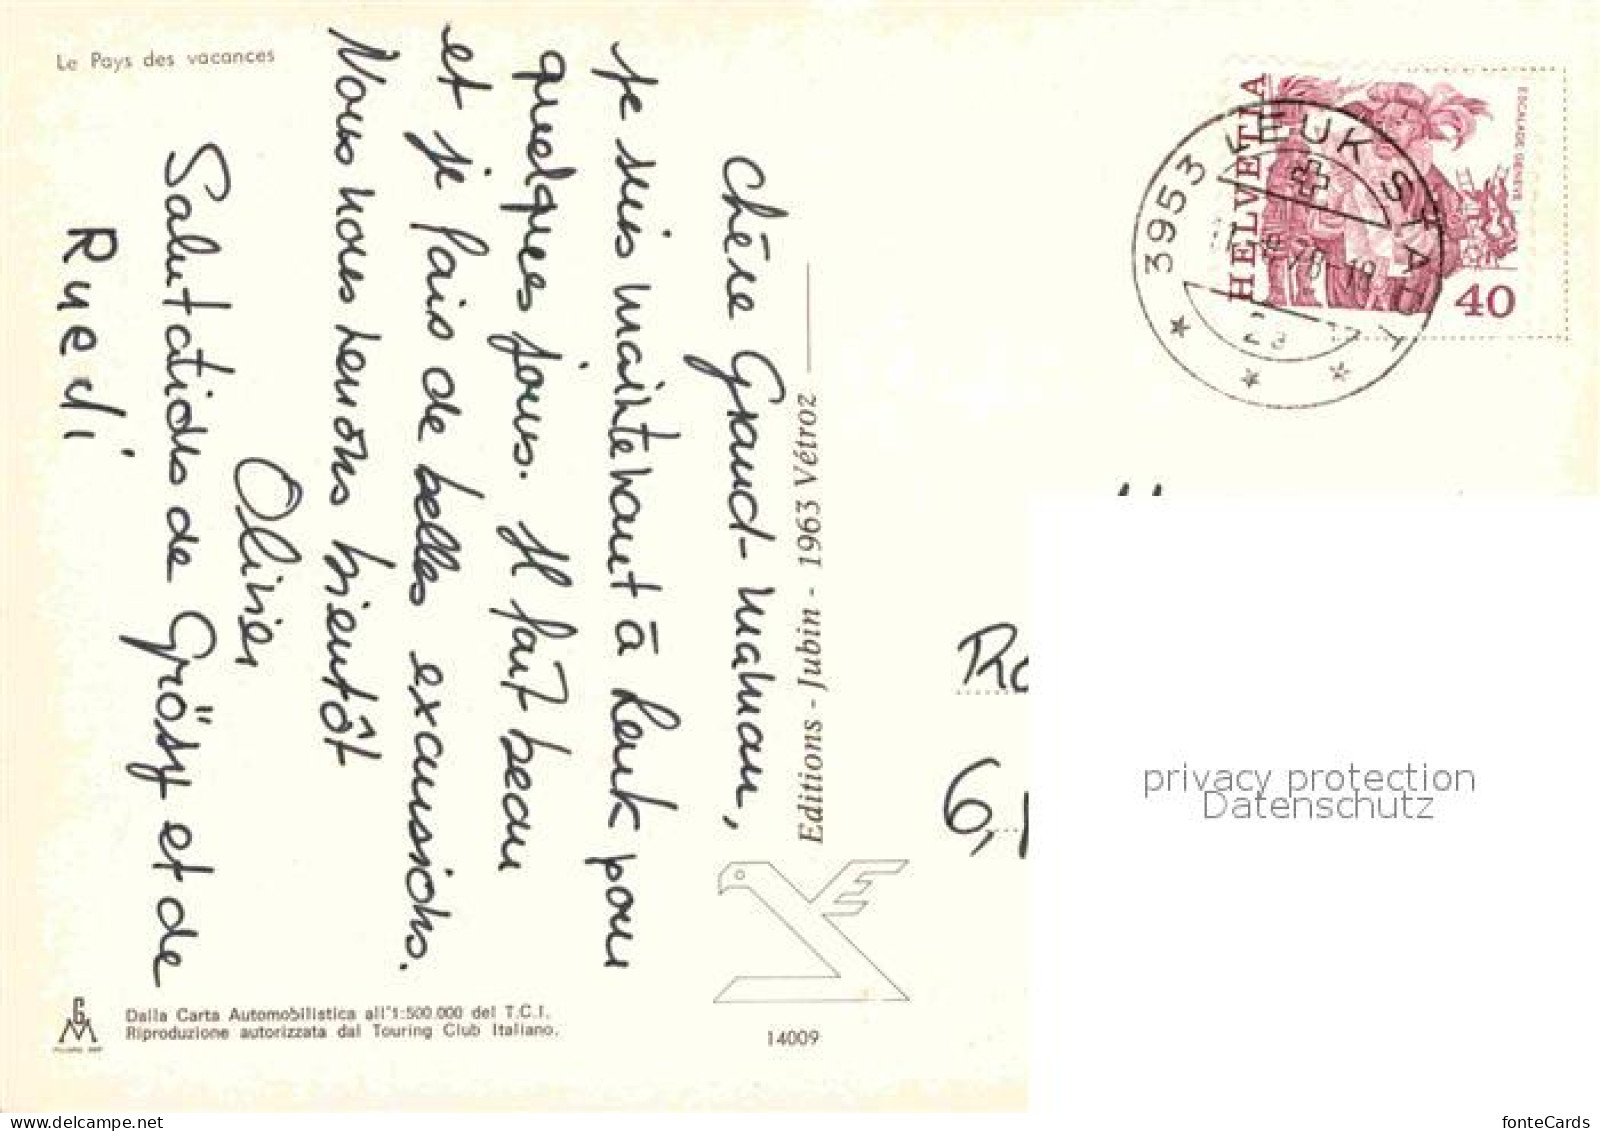 Le Pays des vacances
Chère Grand-maman,
Je suis maintenant à Leuk pour
quelques jours. Il fait beau
et je fais de belles excursions.
Nous nous reverrons bientôt
Olivier
Salutations de Grösy et de
Ruedi
Editions - Jubin - 1963 Vétroz
Dalla Carta Automobilistica all'1:500.000 del T.C.I.
Riproduzione autorizzata dal Touring Club Italiano.
14009
HELVETIA
ESCALADE GENÈVE
40
3953 LEUK STADT
privacy protection
Datenschutz
www.delcampe.net
fonteCards